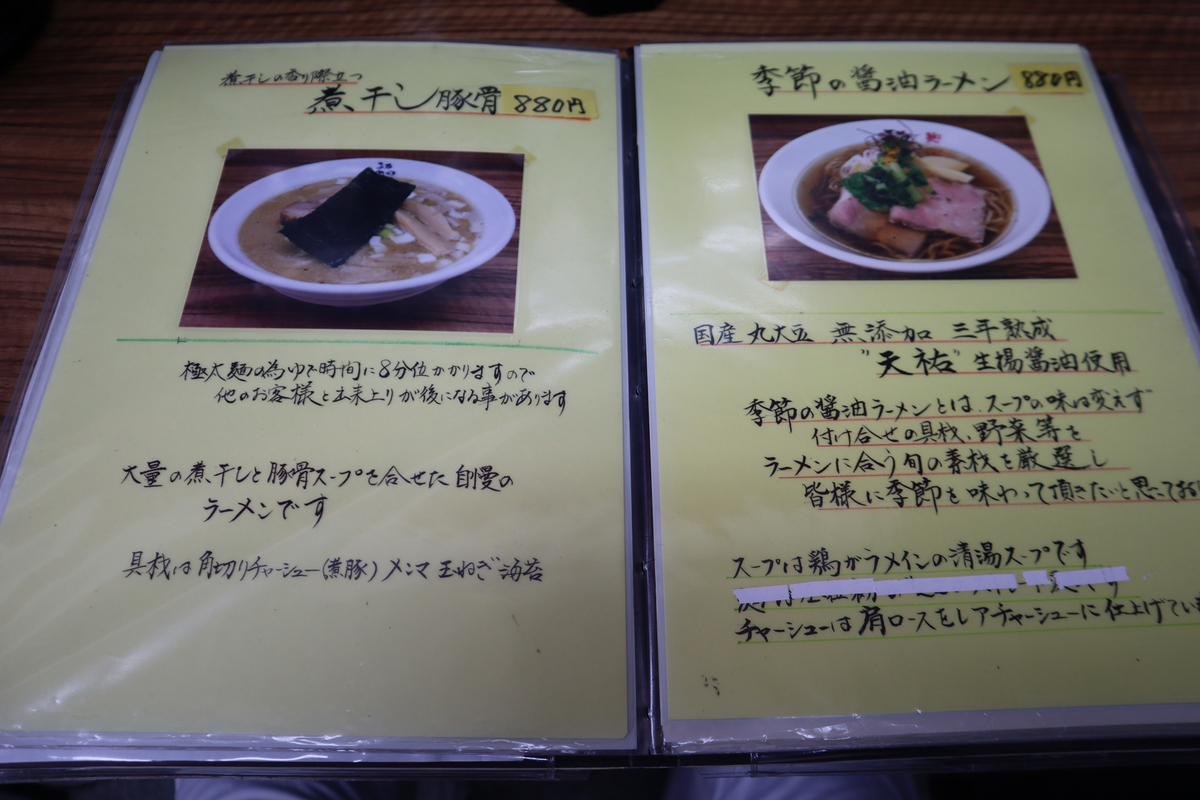 煮干しの香り際立つ
煮干し豚骨 880円
極太麺の為ゆで時間に8分位かかりますので
他のお客様と出来上りが後になる事があります
大量の煮干しと豚骨スープを合せた自慢の
ラーメンです
具材は角切りチャーシュー(煮豚)メンマ玉ねぎ海苔
季節の醤油ラーメン 880円
国産丸大豆 無添加 三年熟成
"天祐"生揚醤油使用
季節の醤油ラーメンとは、スープの味は変えず
付け合せの具材、野菜等を
ラーメンに合う旬の素材を厳選し
皆様に季節を味わって頂きたいと思ってお
スープは鶏がラメインの清湯スープです
チャーシューは肩ロースをレアチャーシューに仕上げてい